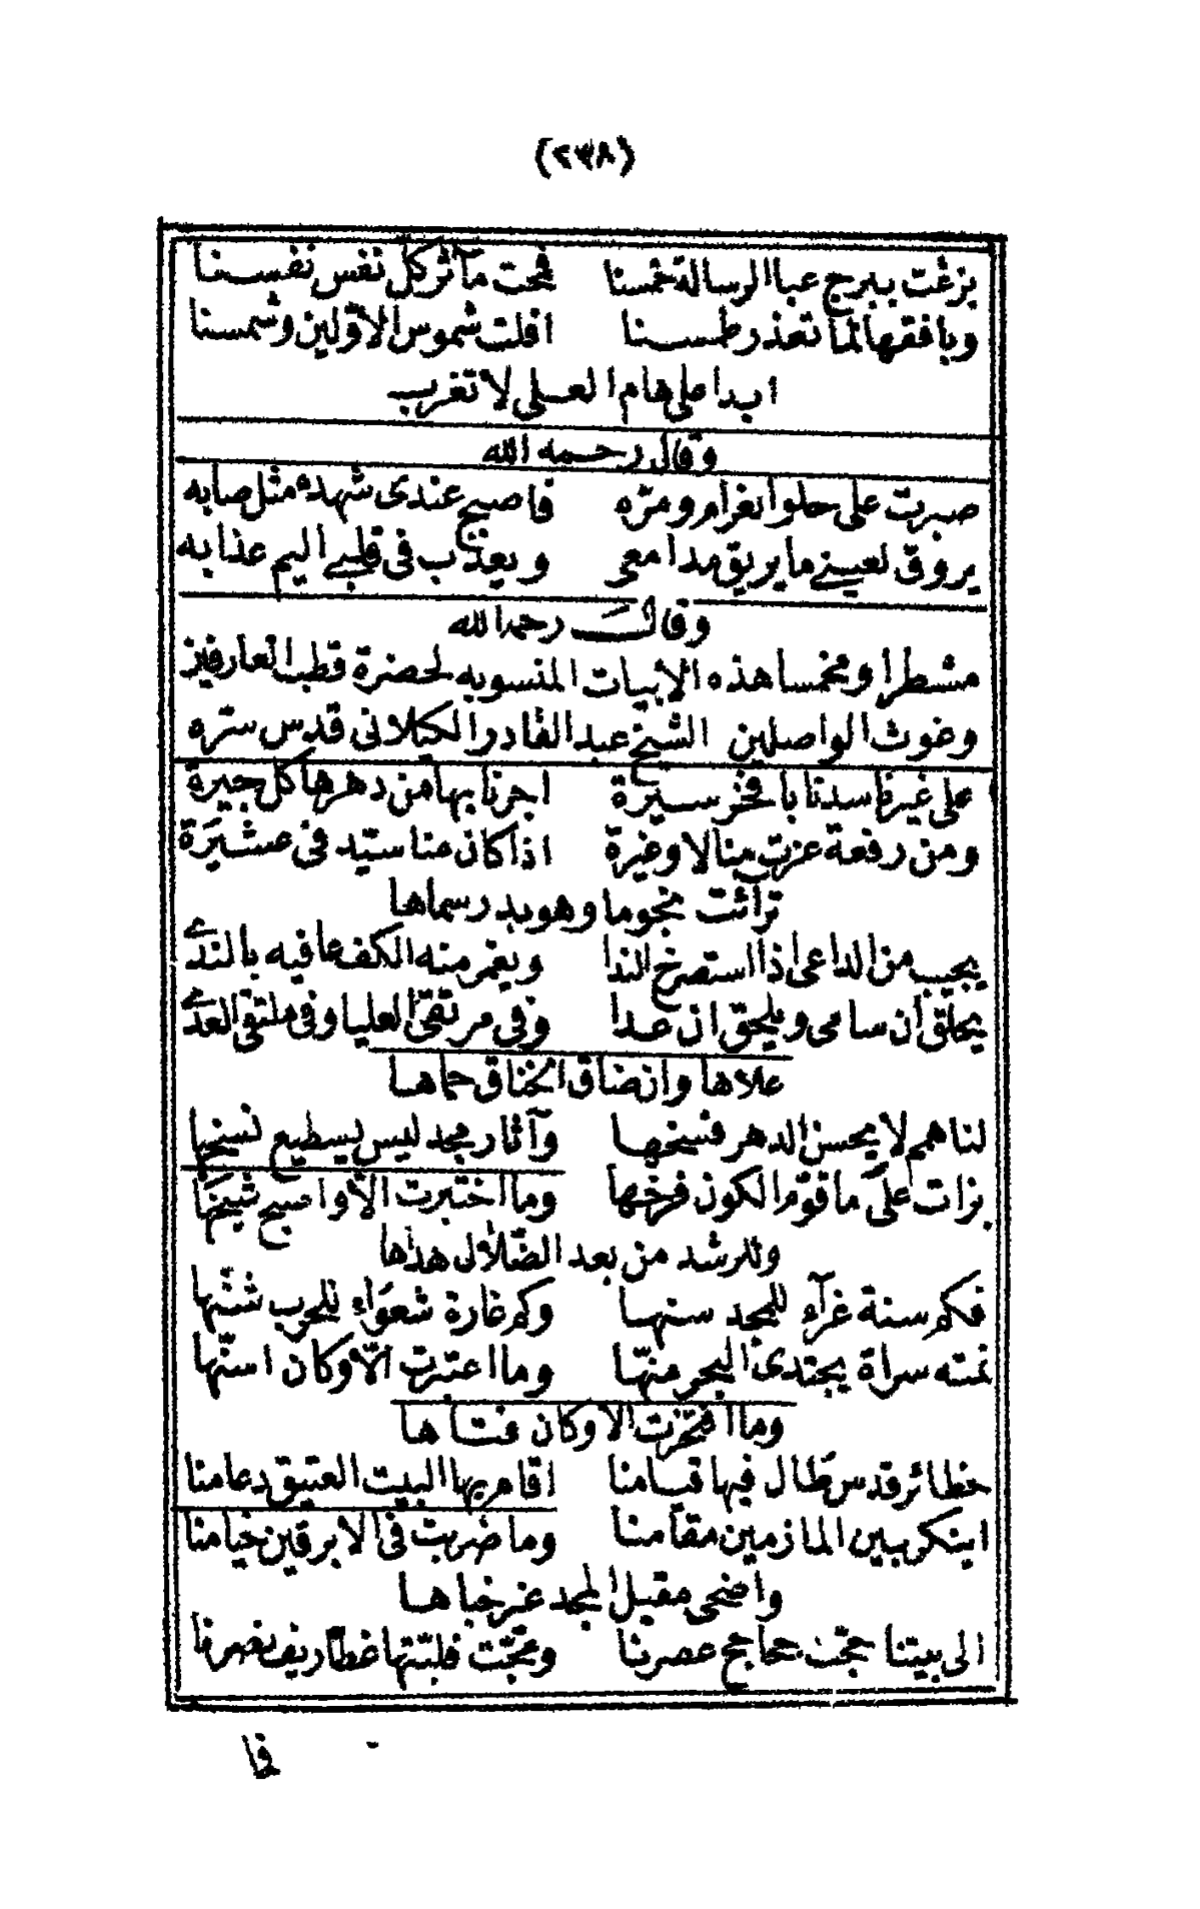 (٢٣٨)
بزغت ببرج عبا الرسالة خمسنا فمحت مآثر كل نفس نفسنا
وبافقها لما تعذر طمسنا افلت شموس الاولين وشمسنا
ابدا على هام العلى لا تغرب
وقال رحمه الله
صبرت على حلو الغرام ومره فاصبح عندى شهده مثل صابه
يروق لعينے ما يريق مدامعى ويعذب فى قلبے اليم عذابه
وقال رحمه الله
مشطرا ومخمسا هذه الابيات المنسوبه لحضرة قطب العارفين
وغوث الواصلين الشيخ عبد القادر الكيلانى قدس سره
على غيرنا سدنا بافخر سيرة اجرنا بها من دهرها كل جيرة
ومن رفعة عزت منالا وغيرة اذا كان منا سيد فى عشيرة
ترائت نجوما وهو بدر سماها
يجيب من الداعى اذا استصرخ الندا ويغمر منه الكف عافيه بالندے
يحلق ان سامى ويلحق ان عدا وفى مرتقى العليا وفى ملتقى العدے
علاها وان ضاق الخناق حماها
لنا همم لا يحسن الدهر فسخها وآثار مجد ليس يسطيع نسخها
بزات على ما قوم الكون فرخها وما اختبرت الا واصبح شيخها
وللرشد من بعد الضلال هداها
فكم سنة غرآء للمجد سنها وكم غارة شعوآء للحرب شنها
نمته سراة يجتدى البحر منها وما اعتبرت الا وكان اسنها
وما افتخرت الا وكان فتاها
خطائر قدس طال فيها قيامنا اقام بها البيت العتيق دعامنا
ايتكر بين المازمين مقامنا وما ضربت فى الابرقين خيامنا
واضحى مقبل المجد غير خباها
الى بيتنا حجت جحاجح عصرنا وعجت فلبتها غطاريف نصرنا
فما